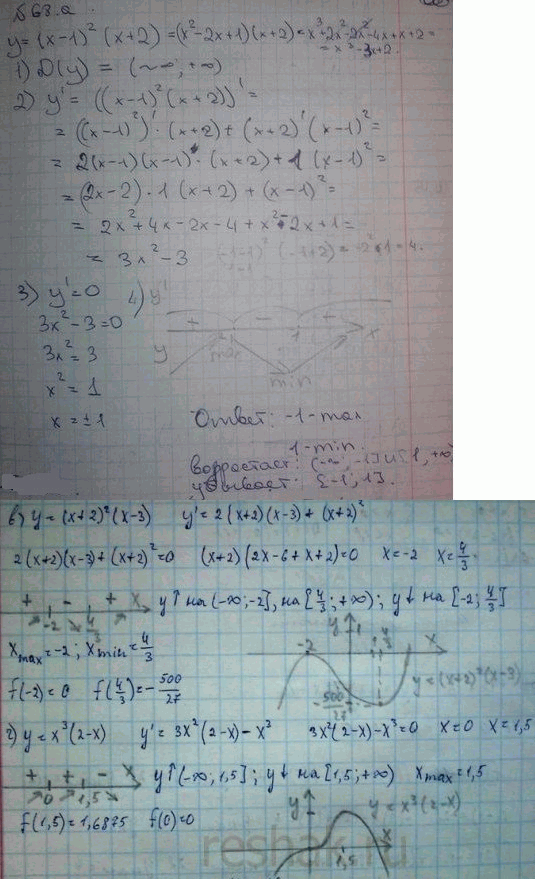 №68.а
y = (x-1)² (x+2) = (x²-2x+1)(x+2) = x³+2x²-2x²-4x+x+2 =
= x³-3x+2.
1) D(y) = (-∞; +∞)
2) y' = ((x-1)² (x+2))' =
= ((x-1)²)' · (x+2) + (x+2)' (x-1)² =
= 2(x-1)(x-1)' · (x+2) + 1 (x-1)² =
= (2x-2) · 1 (x+2) + (x-1)² =
= 2x²+4x-2x-4+x²-2x+1 =
= 3x²-3
3) y'=0
3x²-3=0
3x²=3
x²=1
x=±1
4) y'
+ - +
1 x
y
max
min
Ответ: -1-max
1-min.
возрастает: (-∞; -1] и [1, +∞)
убывает: [-1; 1].
в) y=(x+2)²(x-3) y'=2(x+2)(x-3)+(x+2)²
2(x+2)(x-3)+(x+2)²=0 (x+2)(2x-6+x+2)=0 x=-2 x=4/3
+ - + x
-2 4/3
y↑ на (-∞;-2], на [4/3;+∞); y↓ на [-2; 4/3]
x max=-2; x min=4/3
f(-2)=0 f(4/3)=-500/27
y
-2 4/3 x
-500/27
y=(x+2)²(x-3)
г) y=x³(2-x) y'=3x²(2-x)-x³ 3x²(2-x)-x³=0 x=0 x=1,5
+ + - x
0 1,5
y↑(-∞;1,5]; y↓ на [1,5;+∞) x max=1,5
f(1,5)=1,6875 f(0)=0
y
y=x³(2-x)
x
1,5
reshak.ru